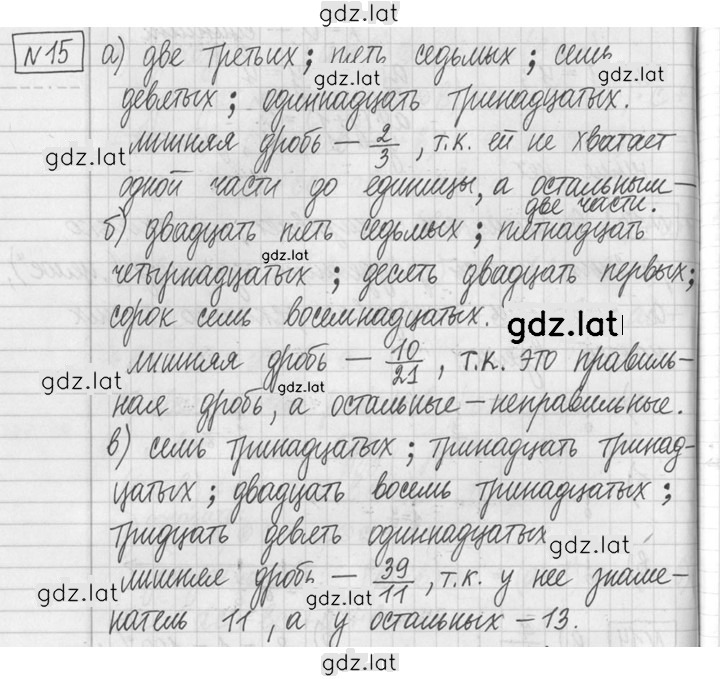 gdz.lat
№15 а) две третьих; пять седьмых; семь
gdz.lat
девятых; одиннадцать тринадцатых.
gdz.lat
лишняя дробь – 2/3, т.к. ей не хватает
gdz.lat
одной части до единицы, а остальным –
две части.
б) двадцать пять седьмых; пятнадцать
gdz.lat
четырнадцатых; десять двадцать первых;
сорок семь восемнадцатых.
gdz.lat
лишняя дробь – 10/21, т.к. это правиль-
gdz.lat
gdz.lat
ная дробь, а остальные – неправильные.
в) семь тринадцатых; тринадцать тринад-
цатых; двадцать восемь тринадцатых;
тридцать девять одиннадцатых
gdz.lat
лишняя дробь – 39/11, т.к. у нее знаме-
gdz.lat
gdz.lat
натель 11, а у остальных – 13.
gdz.lat
gdz.lat